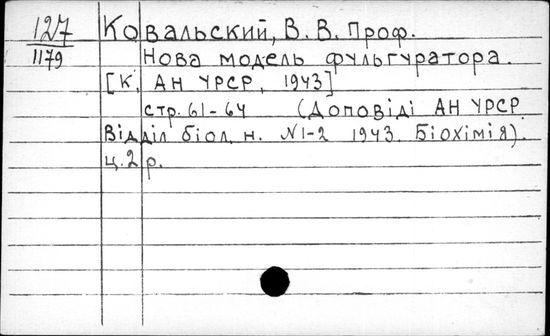 127
1179
Ковальский, В. В. Проф.
Нова модель фульгуратора.
[К, АН УРСР, 1943]
стр. 61-64 (Доповіді АН УРСР
Відділ біол. н. №1-2 1943. Біохімія).
ц. 2 р.